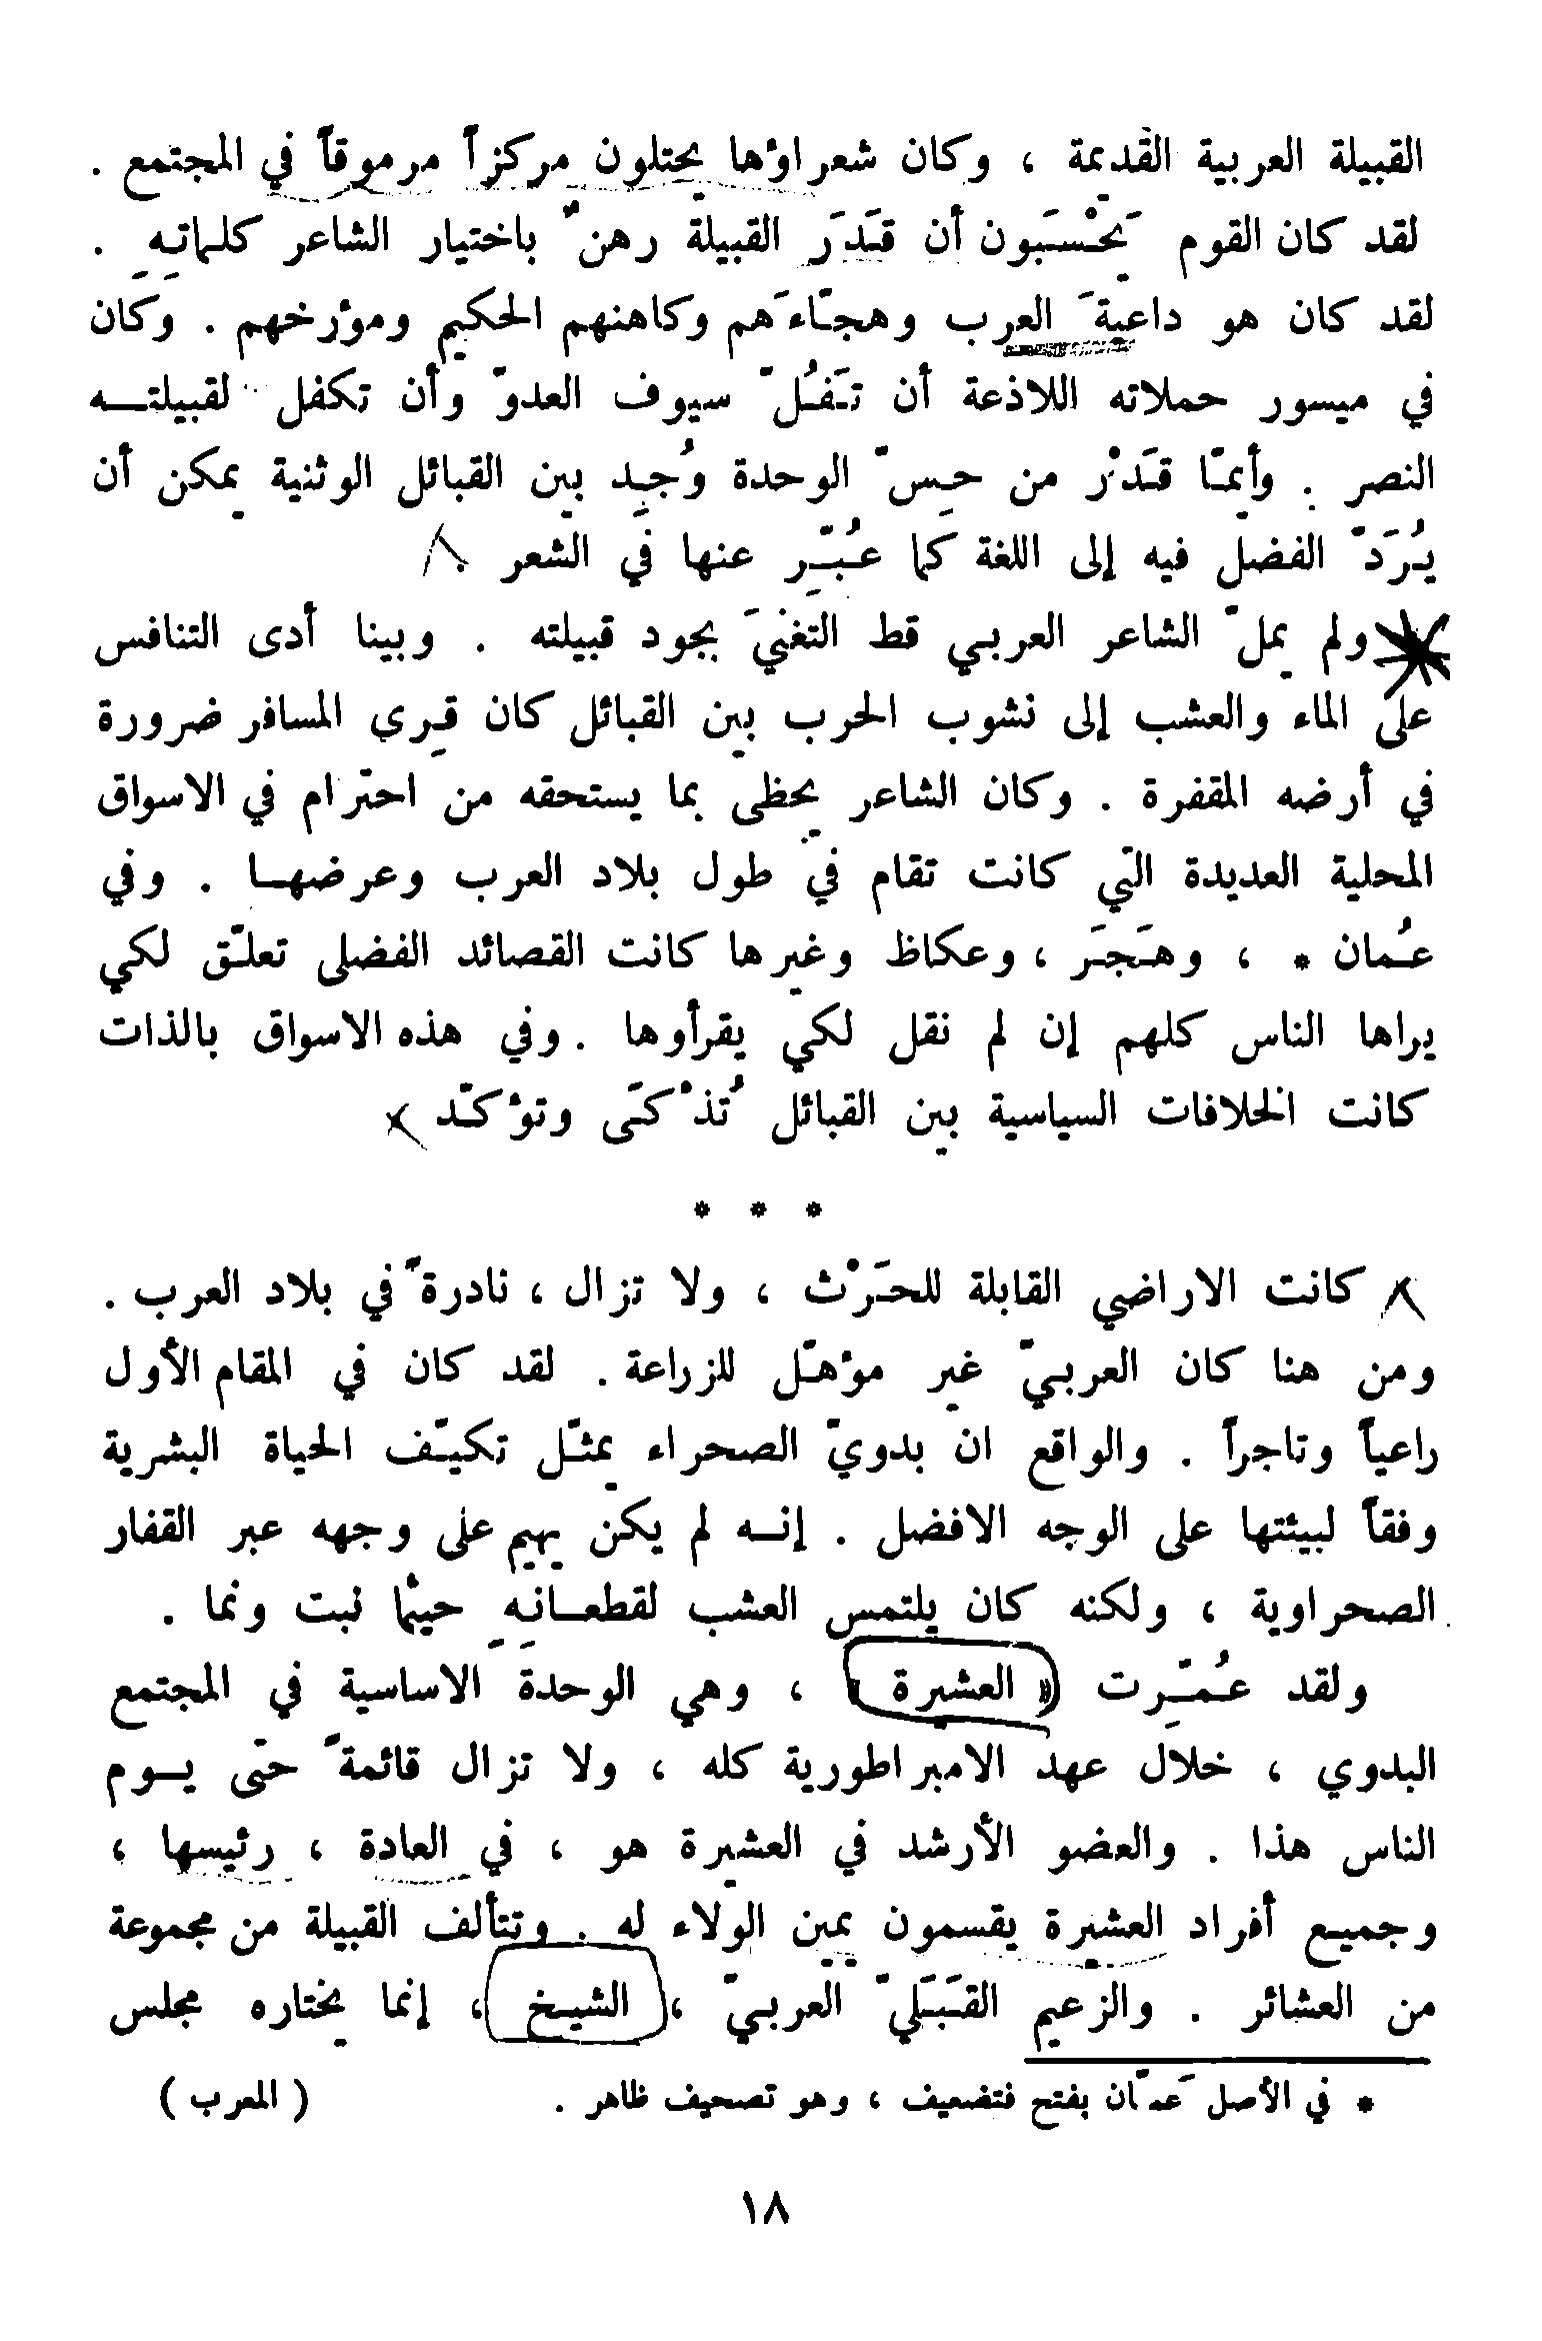 القبيلة العربية القديمة ، وكان شعراؤها يحتلون مركزاً مرموقاً في المجتمع .
لقد كان القوم يَحْسَبون أن قَدَرَ القبيلة رهنٌ باختيار الشاعر كلماتِهِ .
لقد كان هو داعيةَ العرب وهجّاءَهم وكاهنهم الحكيم ومؤرخهم . وكان
في ميسور حملاته اللاذعة أن تَفُلّ سيوف العدوّ وأن تكفل لقبيلتـــه
النصر . وأيمّا قَدْر من حِسّ الوحدة وُجِد بين القبائل الوثنية يمكن أن
يُرَدّ الفضل فيه إلى اللغة كما عُبّر عنها في الشعر .
ولم يملّ الشاعر العربي قط التغنيَ بجود قبيلته . وبينا أدى التنافس
على الماء والعشب إلى نشوب الحرب بين القبائل كان قِرى المسافر ضرورة
في أرضه المقفرة . وكان الشاعر يحظى بما يستحقه من احترام في الاسواق
المحلية العديدة التي كانت تقام في طول بلاد العرب وعرضهـا . وفي
عُمان * ، وهَجَر ، وعكاظ وغيرها كانت القصائد الفضلى تعلّق لكي
يراها الناس كلهم إن لم نقل لكي يقرأوها . وفي هذه الاسواق بالذات
كانت الخلافات السياسية بين القبائل تُذْكَى وتؤكّد
* * *
كانت الاراضي القابلة للحَرْث ، ولا تزال ، نادرةً في بلاد العرب .
ومن هنا كان العربيّ غير مؤهّل للزراعة . لقد كان في المقام الأول
راعياً وتاجراً . والواقع ان بدويّ الصحراء يمثّل تكيّف الحياة البشرية
وفقاً لبيئتها على الوجه الافضل . إنـه لم يكن يهيم على وجهه عبر القفار
الصحراوية ، ولكنه كان يلتمس العشب لقطعـانِهِ حيثما نبت ونما .
ولقد عُمّرت « العشيرة » ، وهي الوحدة الاساسية في المجتمع
البدوي ، خلال عهد الامبراطورية كله ، ولا تزال قائمةً حتى يـوم
الناس هذا . والعضو الأرشد في العشيرة هو ، في العادة ، رئيسها ،
وجميع أفراد العشيرة يقسمون يمين الولاء له . وتتألف القبيلة من مجموعة
من العشائر . والزعيم القَبَليّ العربيّ ، الشيخ ، إنما يختاره مجلس
* في الأصل عَمّان بفتح فتضعيف ، وهو تصحيف ظاهر . ( المعرب )
١٨